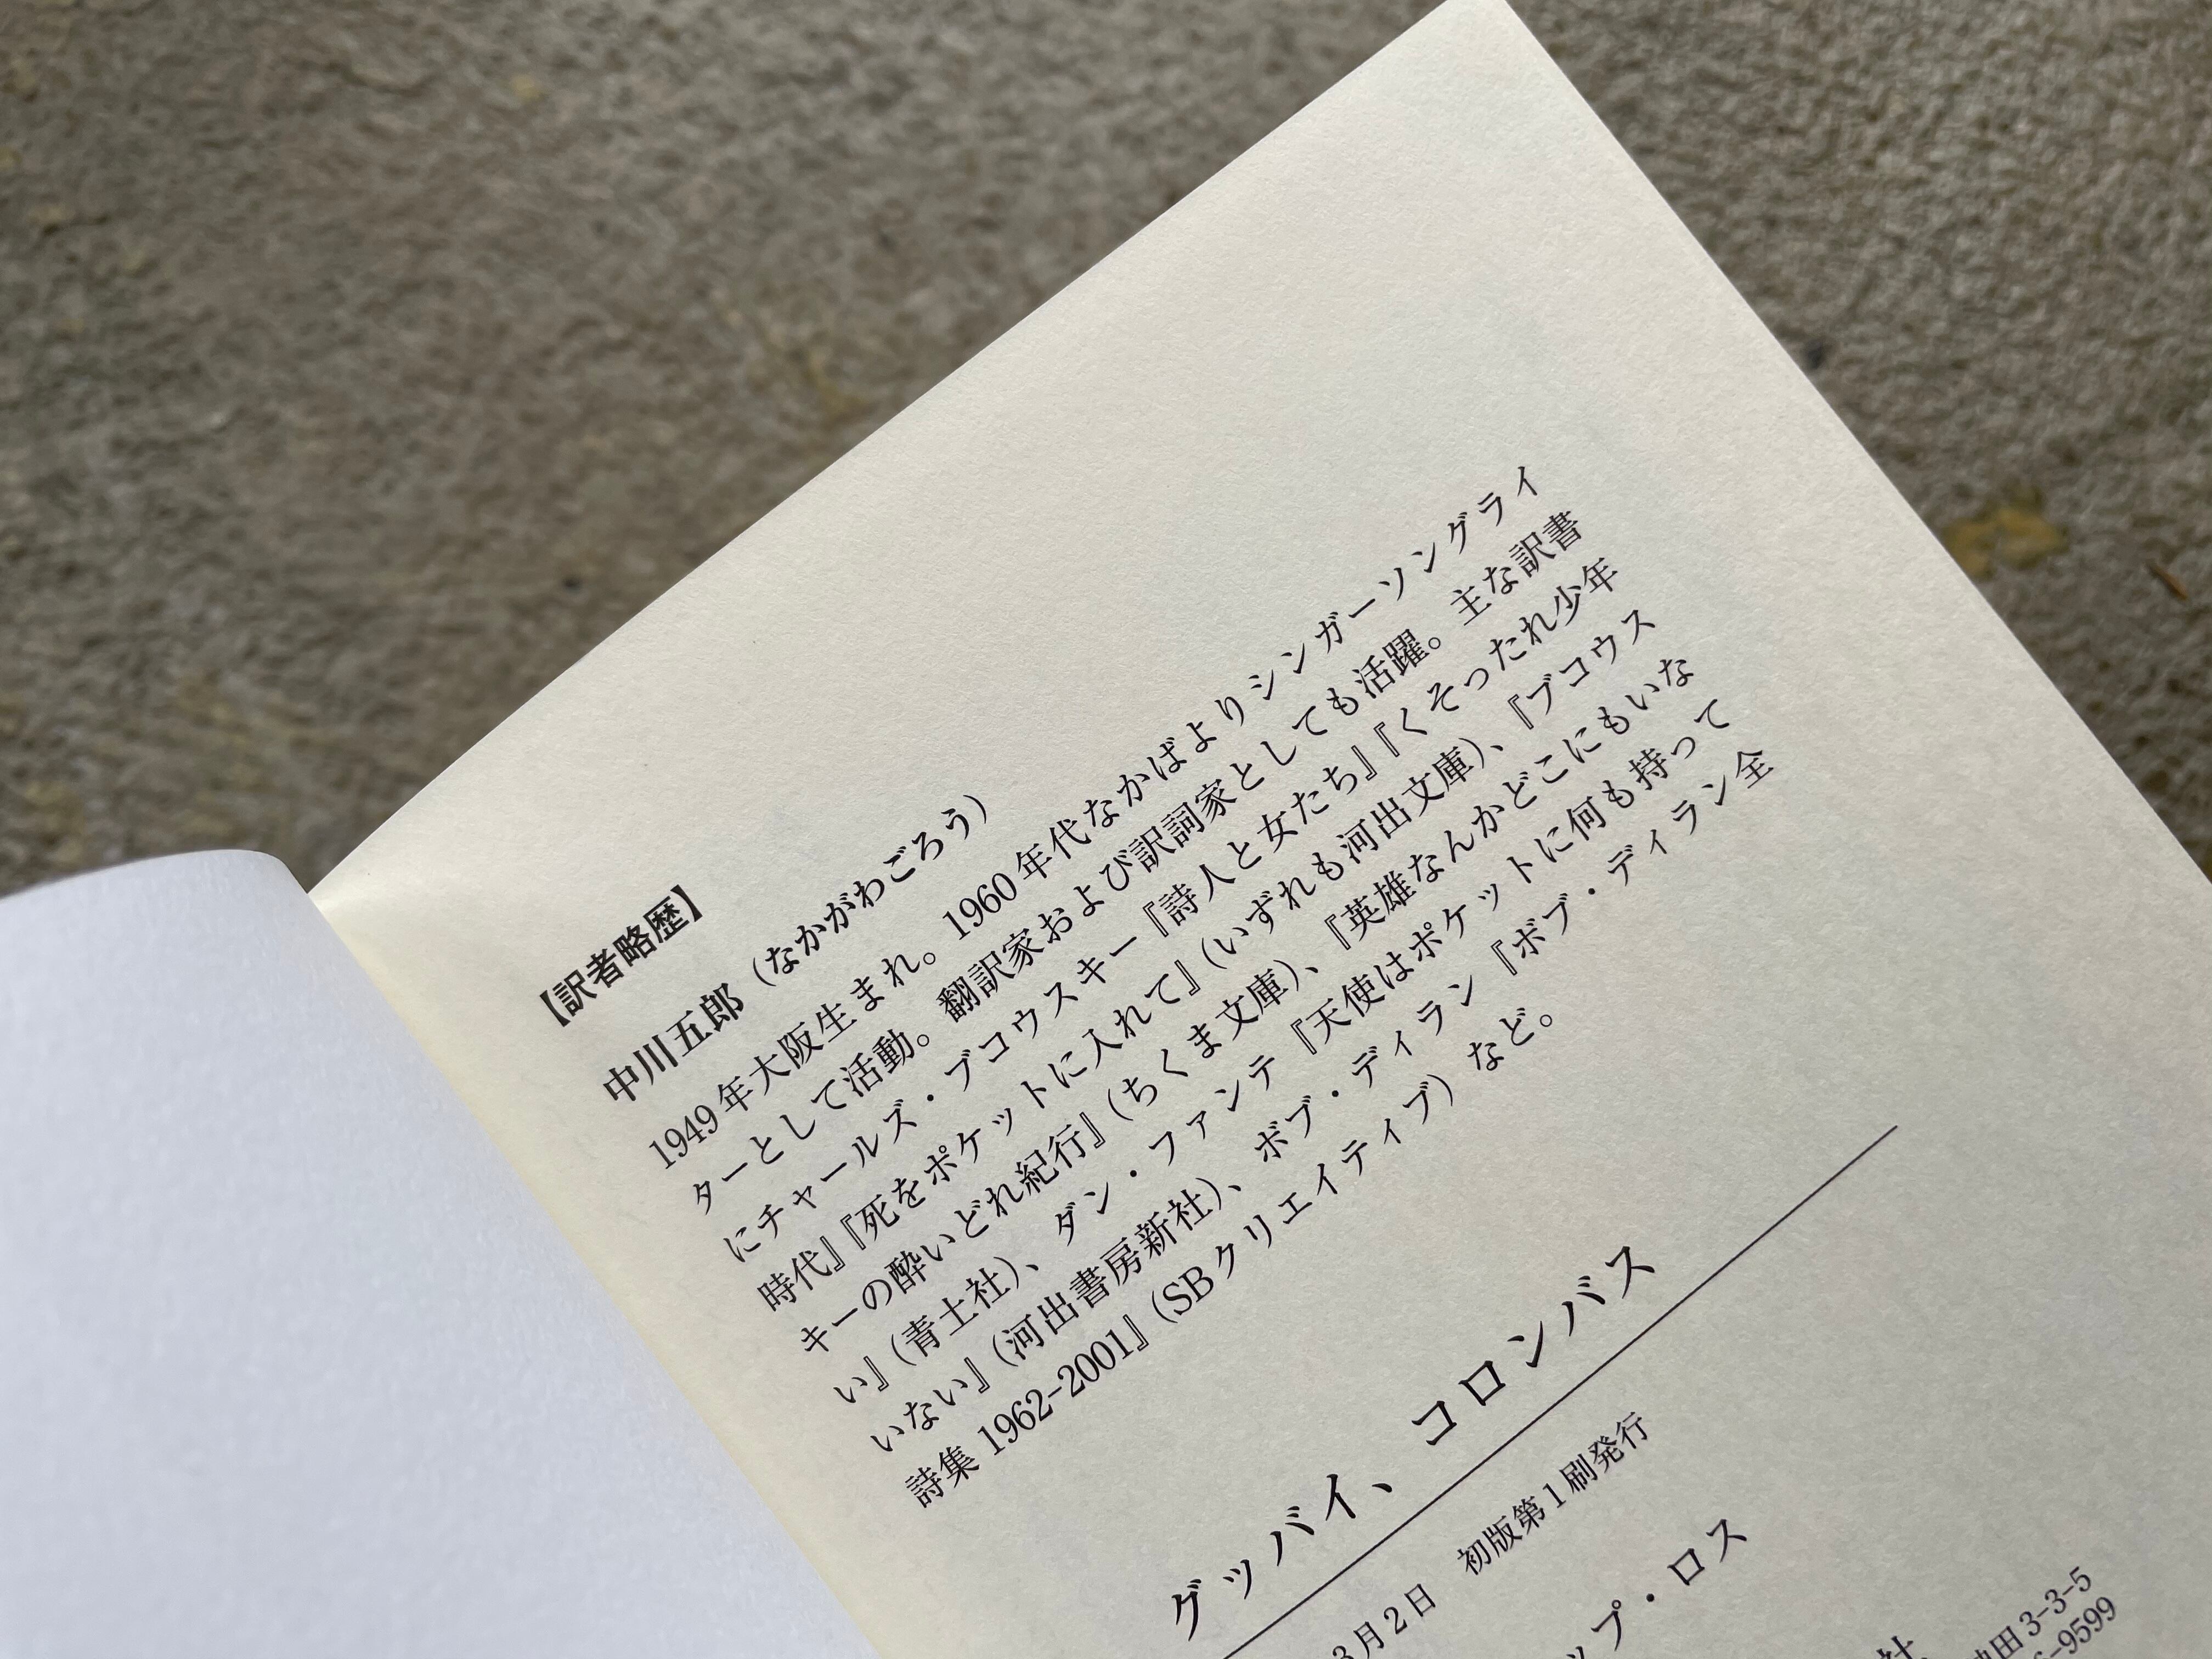 【訳者略歴】
中川五郎（なかがわごろう）
1949年大阪生まれ。1960年代なかばよりシンガーソングライ
ターとして活動。翻訳家および訳詞家としても活躍。主な訳書
にチャールズ・ブコウスキー『詩人と女たち』『くそったれ少年
時代』『死をポケットに入れて』（いずれも河出文庫）、『ブコウス
キーの酔いどれ紀行』（ちくま文庫）、『英雄なんかどこにもいな
い』（青土社）、ダン・ファンテ『天使はポケットに何も持って
いない』（河出書房新社）、ボブ・ディラン『ボブ・ディラン全
詩集 1962-2001』（SBクリエイティブ）など。
グッバイ、コロンバス
3月2日 初版第1刷発行
ップ・ロス
社
田3-3-5
-9599